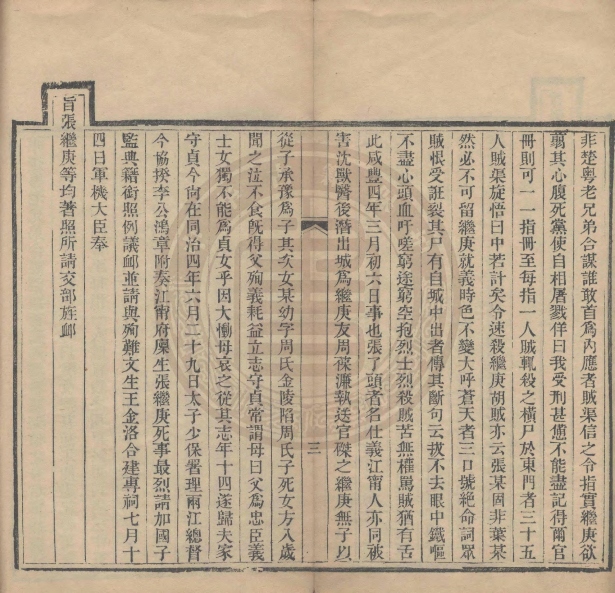 非楚粤老兄弟合謀誰敢首爲內應者賊渠信之令指實繼庚欲
翦其心腹死黨使自相屠戮佯曰我受刑甚憊不能盡記得爾官
冊則可一一指冊至每指一人賊輒殺之橫尸於東門者三十五
人賊渠旋悟曰中若計矣令速殺繼庚胡賊亦云張某固非葉某
然必不可留繼庚就義時色不變大呼蒼天者三口號絕命詞眾
賊恨受誑裂其尸有自城中出者傳其斷句云拔不去眼中鐵嘔
不盡心頭血吁嗟窮途窮空抱烈士烈殺賊苦無權罵賊猶有舌
此咸豐四年三月初六日事也張了頭者名仕義江甯人亦同被
害沈獸醫後潛出城爲繼庚友周葆濂執送官磔之繼庚無子以
從子承豫爲子其次女某幼字周氏金陵陷周氏子死女方八歲
聞之泣不食旣得父殉義耗益立志守貞常謂母曰父爲忠臣義
士女獨不能爲貞女乎因大慟母哀之從其志年十四遂歸夫家
守貞今尙在同治四年六月二十九日太子少保署理兩江總督
今協揆李公鴻章附奏江甯府廩生張繼庚死事最烈請加國子
監典籍銜照例議卹並請與殉難文生王金洛合建專祠七月十
四日軍機大臣奉
旨張繼庚等均著照所請交部旌卹
三